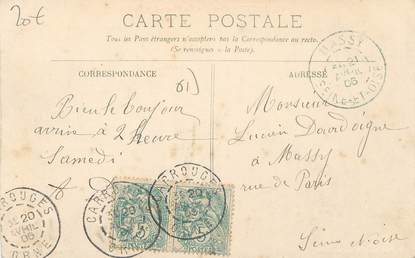 20€
CARTE POSTALE
Tous les Pays étrangers n'acceptent pas la Correspondance au recto.
(Se renseigner à la Poste).
CORRESPONDANCE
ADRESSE
61)
Bien le bonjour
arrive à 2 heure
Samedi
A D
Monsieur
Lucien Dourdoigne
à Massy
rue de Paris
Seine et Oise
MASSY
21
AVRIL
06
SEINE-ET-OISE
CARROUGES
20
AVRIL
06
ORNE
CARROUGES
20
ORNE
CARROUGES
20
5
5